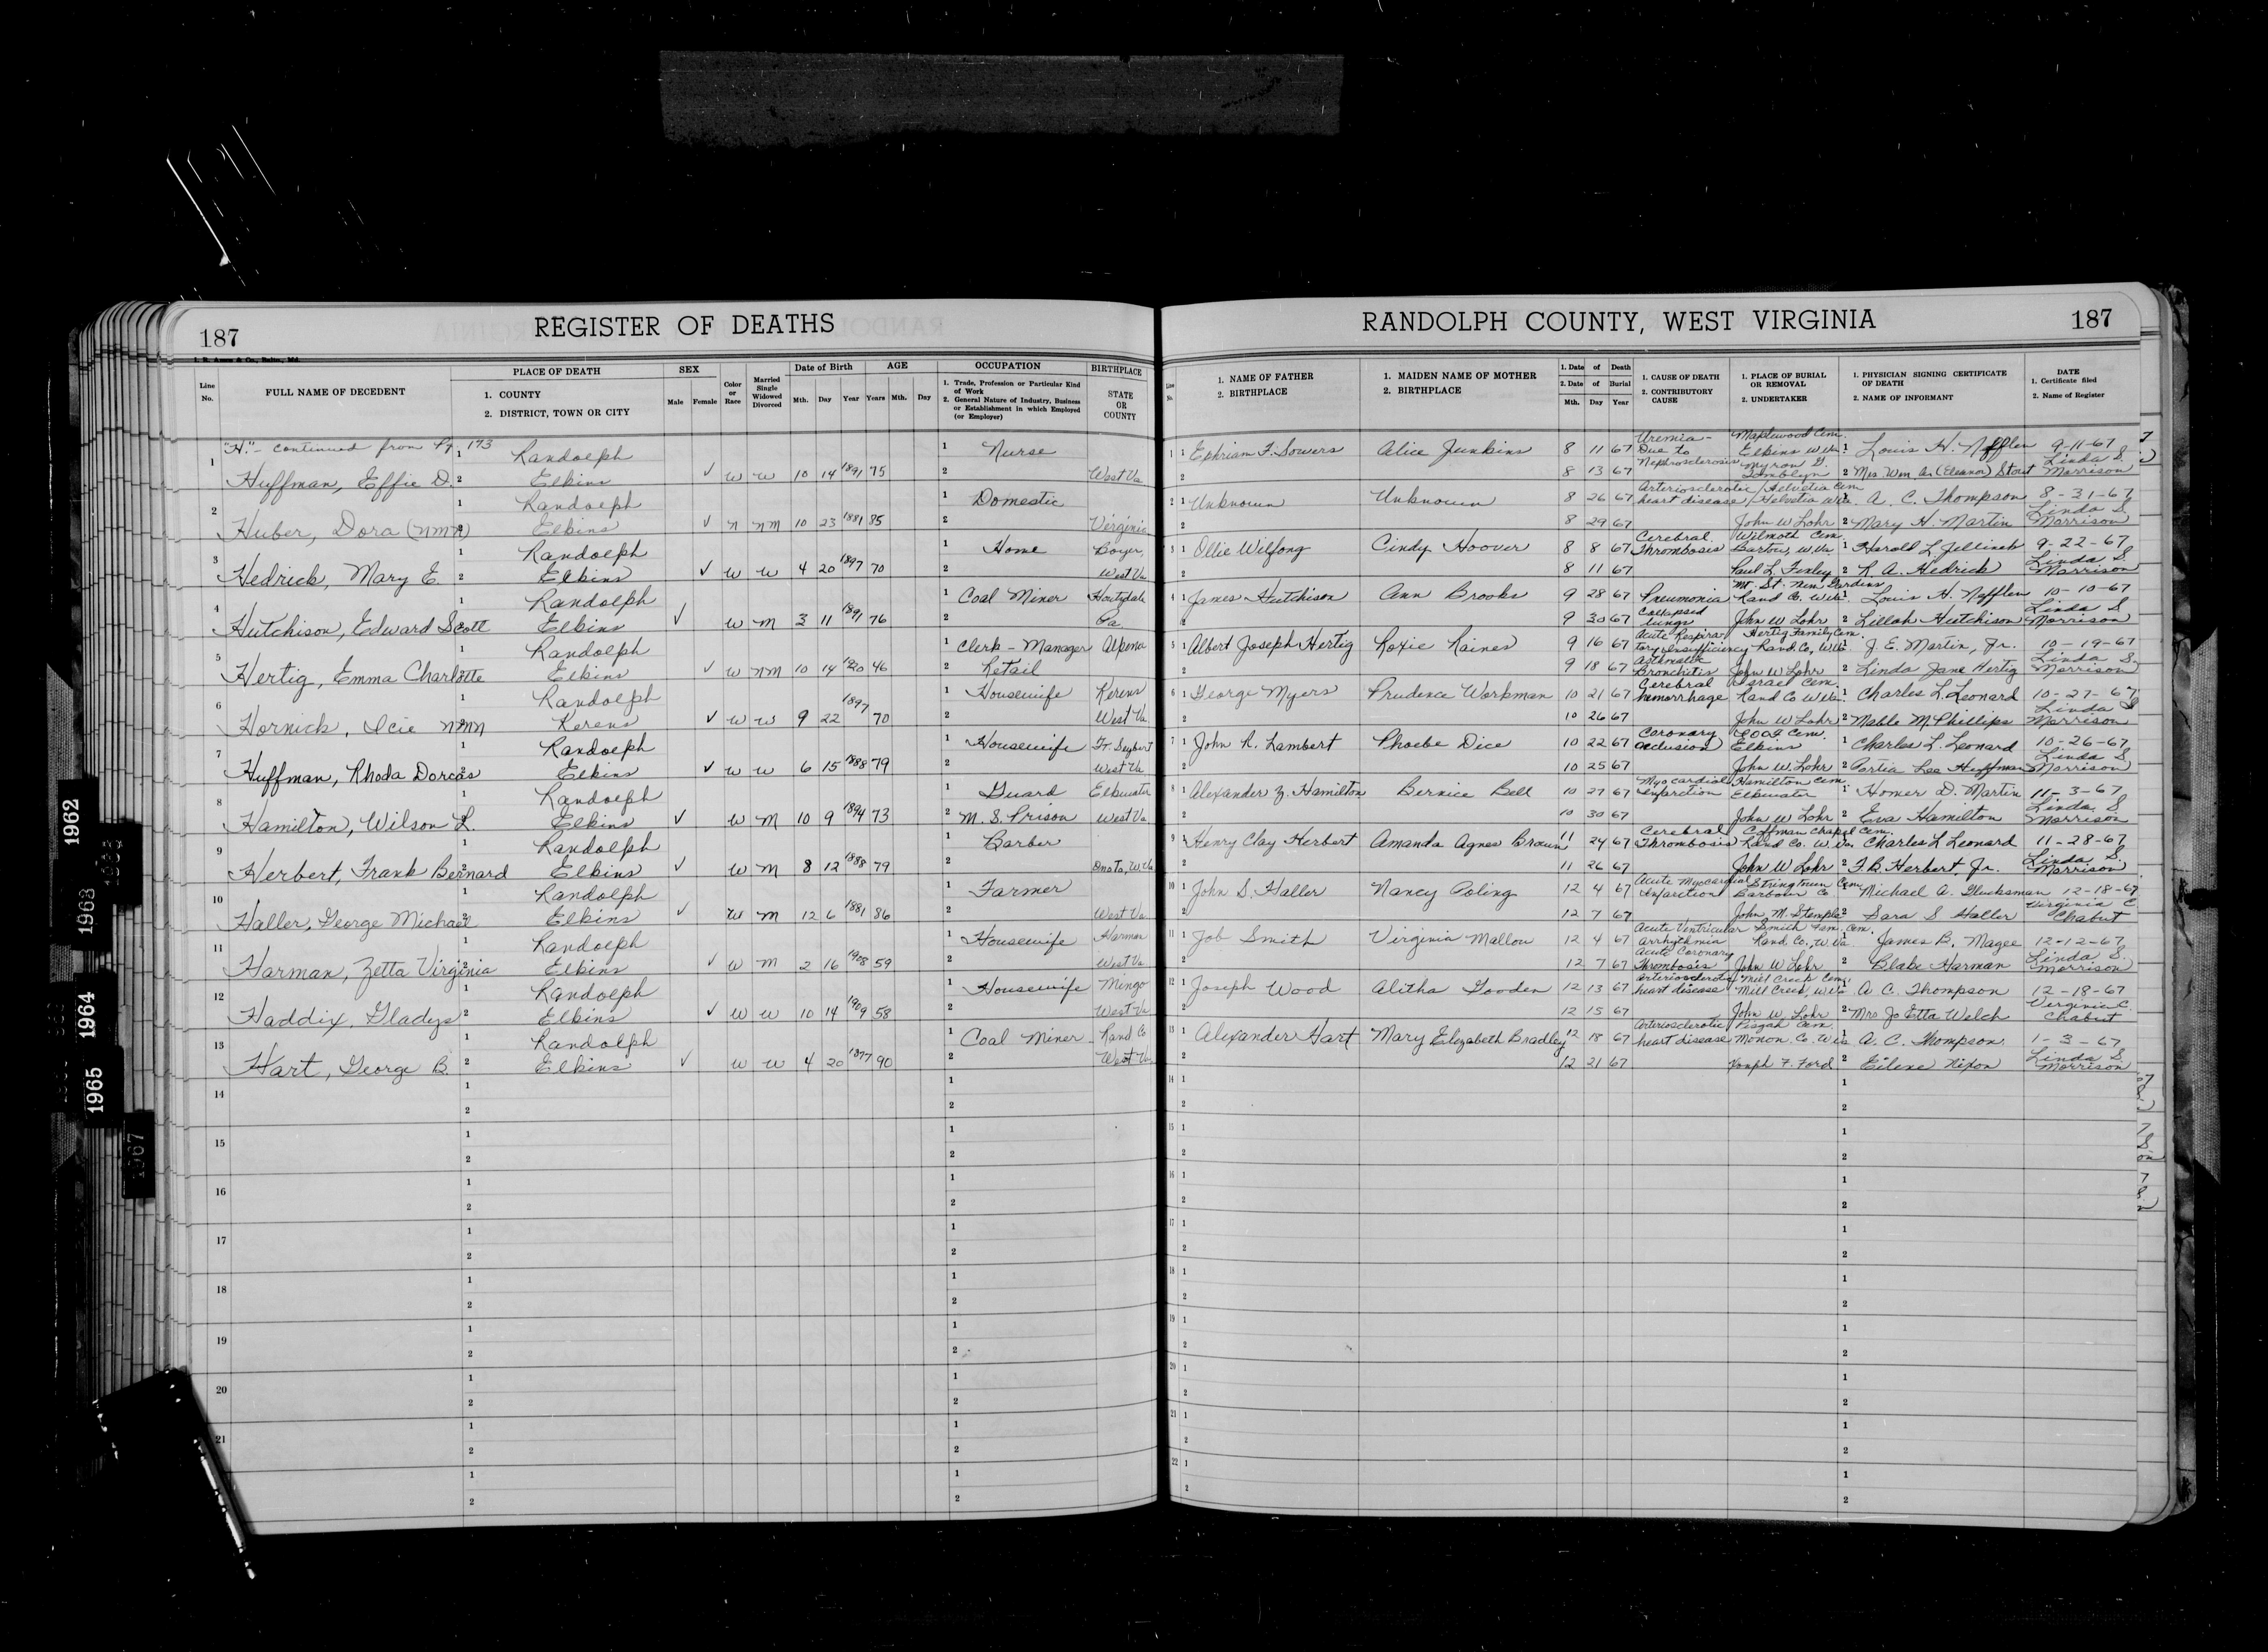 187 REGISTER OF DEATHS
RANDOLPH COUNTY, WEST VIRGINIA 187
Line No. FULL NAME OF DECEDENT PLACE OF DEATH 1. COUNTY 2. DISTRICT, TOWN OR CITY SEX Male Female Color or Race Married Single Widowed Divorced Date of Birth Mth. Day Year AGE Years Mth. Day OCCUPATION 1. Trade, Profession or Particular Kind of Work 2. General Nature of Industry, Business or Establishment in which Employed (or Employer) BIRTHPLACE STATE OR COUNTY
Line No. 1. NAME OF FATHER 2. BIRTHPLACE 1. MAIDEN NAME OF MOTHER 2. BIRTHPLACE 1. Date of Death 2. Date of Burial Mth. Day Year 1. CAUSE OF DEATH 2. CONTRIBUTORY CAUSE 1. PLACE OF BURIAL OR REMOVAL 2. UNDERTAKER 1. PHYSICIAN SIGNING CERTIFICATE OF DEATH 2. NAME OF INFORMANT DATE 1. Certificate filed 2. Name of Register
"H" - continued from Pg. 173
1 1 Randolph 1 Nurse
Huffman, Effie D. 2 Elkins ✓ W W 10 14 1891 75 2 West Va
2 1 Randolph 1 Domestic
Huber, Dora (nmn) 2 Elkins ✓ n nm 10 23 1881 85 2 Virginia
3 1 Randolph 1 Home Boyer,
Hedrick, Mary E. 2 Elkins ✓ W W 4 20 1897 70 2 West Va
4 1 Randolph 1 Coal Miner Houtzdale
Hutchison, Edward Scott 2 Elkins ✓ W M 3 11 1891 76 2 Pa.
5 1 Randolph 1 Clerk - Manager Alpena
Hertig, Emma Charlotte 2 Elkins ✓ W nm 10 14 1920 46 2 Retail
6 1 Randolph 1 Housewife Kerens
Hornick, Icie nmn 2 Kerens ✓ W W 9 22 1897 70 2 West Va.
7 1 Randolph 1 Housewife Ft. Seybert
Huffman, Rhoda Dorcas 2 Elkins ✓ W W 6 15 1888 79 2 West Va
8 1 Randolph 1 Guard Elkwater
Hamilton, Wilson L. 2 Elkins ✓ W M 10 9 1894 73 2 M. S. Prison West Va.
9 1 Randolph 1 Barber
Herbert, Frank Bernard 2 Elkins ✓ W M 8 12 1888 79 2 W. Va
10 1 Randolph 1 Farmer
Haller, George Michael 2 Elkins ✓ W M 12 6 1881 86 2 West Va.
11 1 Randolph 1 Housewife Harman
Harman, Zetta Virginia 2 Elkins ✓ W M 2 16 1908 59 2 West Va
12 1 Randolph 1 Housewife Mingo
Haddix, Gladys 2 Elkins ✓ W W 10 14 1909 58 2 West Va
13 1 Randolph 1 Coal Miner Rand Co
Hart, George B. 2 Elkins ✓ W W 4 20 1877 90 2 West Va
14
15
16
17
18
19
20
21
1 1 Ephriam F. Sowers Alice Junkins 8 11 67 Uremia - Due to Maplewood Cem. Elkins W Va. 1 Louis H. Nefflen 9-11-67
2 8 13 67 Nephrosclerosis Myron G. Tomblyn 2 Mrs Wm. A. (Eleanor) Stout Linda S. Morrison
2 1 Unknown Unknown 8 26 67 Arteriosclerotic heart disease Helvetia Cem Helvetia W Va. 1 A. C. Thompson 8-31-67
2 8 29 67 John W Lohr 2 Mary H. Martin Linda S. Morrison
3 1 Ollie Wilfong Cindy Hoover 8 8 67 Cerebral Thrombosis Wilmoth Cem. Bartow, W. Va. 1 Harold L. Jellinek 9-22-67
2 8 11 67 Paul L. Finley 2 R. A. Hedrick Linda S. Morrison
4 1 James Hutchison Ann Brooks 9 28 67 Pneumonia Mt. St. Mem Gardins, Rand Co. W Va. 1 Louis H. Nefflen 10-10-67
2 9 30 67 Collapsed lungs John W Lohr 2 Lillah Hutchison Linda S Morrison
5 1 Albert Joseph Hertig Roxie Raines 9 16 67 Acute Respiratory Insufficiency Hertig Family Cem. Rand. Co, W Va. 1 J. E. Martin, Jr. 10-19-67
2 9 18 67 Asthmatic Bronchitis John W Lohr 2 Linda Jane Hertig Linda S. Morrison
6 1 George Myers Prudence Workman 10 21 67 Cerebral hemorrhage Israel Cem. Rand Co W Va. 1 Charles L. Leonard 10-27-67
2 10 26 67 John W Lohr 2 Mable M. Phillips Linda S Morrison
7 1 John R. Lambert Phoebe Dice 10 22 67 Coronary occlusion IOOF Cem. Elkins 1 Charles L. Leonard 10-26-67
2 10 25 67 John W. Lohr 2 Portia Lee Huffman Linda S Morrison
8 1 Alexander Z. Hamilton Bernice Bell 10 27 67 Myocardial Infarction Hamilton Cem. Elkwater 1 Homer D. Martin 11-3-67
2 10 30 67 John W Lohr 2 Eva Hamilton Linda S Morrison
9 1 Henry Clay Herbert Amanda Agnes Brown 11 24 67 Cerebral Thrombosis Coffman Chapel Cem. Rand Co. W. Va. 1 Charles L Leonard 11-28-67
2 11 26 67 John W Lohr 2 F. B. Herbert, Jr. Linda S. Morrison
10 1 John S. Haller Nancy Poling 12 4 67 Acute Myocardial Infarction Stringtown Cem Barbour Co 1 Michael A. Glucksman 12-18-67
2 12 7 67 John M. Stemple 2 Sara S Haller Virginia C. Chabut
11 1 Job Smith Virginia Mallow 12 4 67 Acute Ventricular arrhythmia Smith Fam. Cem. Rand. Co., W. Va 1 James B. Magee 12-12-67
2 12 7 67 Acute Coronary Thrombosis John W Lohr 2 Blake Harman Linda S. Morrison
12 1 Joseph Wood Alitha Gooden 12 13 67 Arteriosclerotic heart disease Mill Creek Cem. Mill Creek, W Va 1 A C. Thompson 12-18-67
2 12 15 67 John W. Lohr 2 Mrs Jo Etta Welch Virginia C. Chabut
13 1 Alexander Hart Mary Elizabeth Bradley 12 18 67 Arteriosclerotic heart disease Pisgah Cem. Monon. Co. W Va 1 A. C. Thompson 1-3-67
2 12 21 67 Joseph F. Ford 2 Eilene Nixon Linda S. Morrison
14
15
16
17
18
19
20
21
22
1962
1963
1964
1965
1967